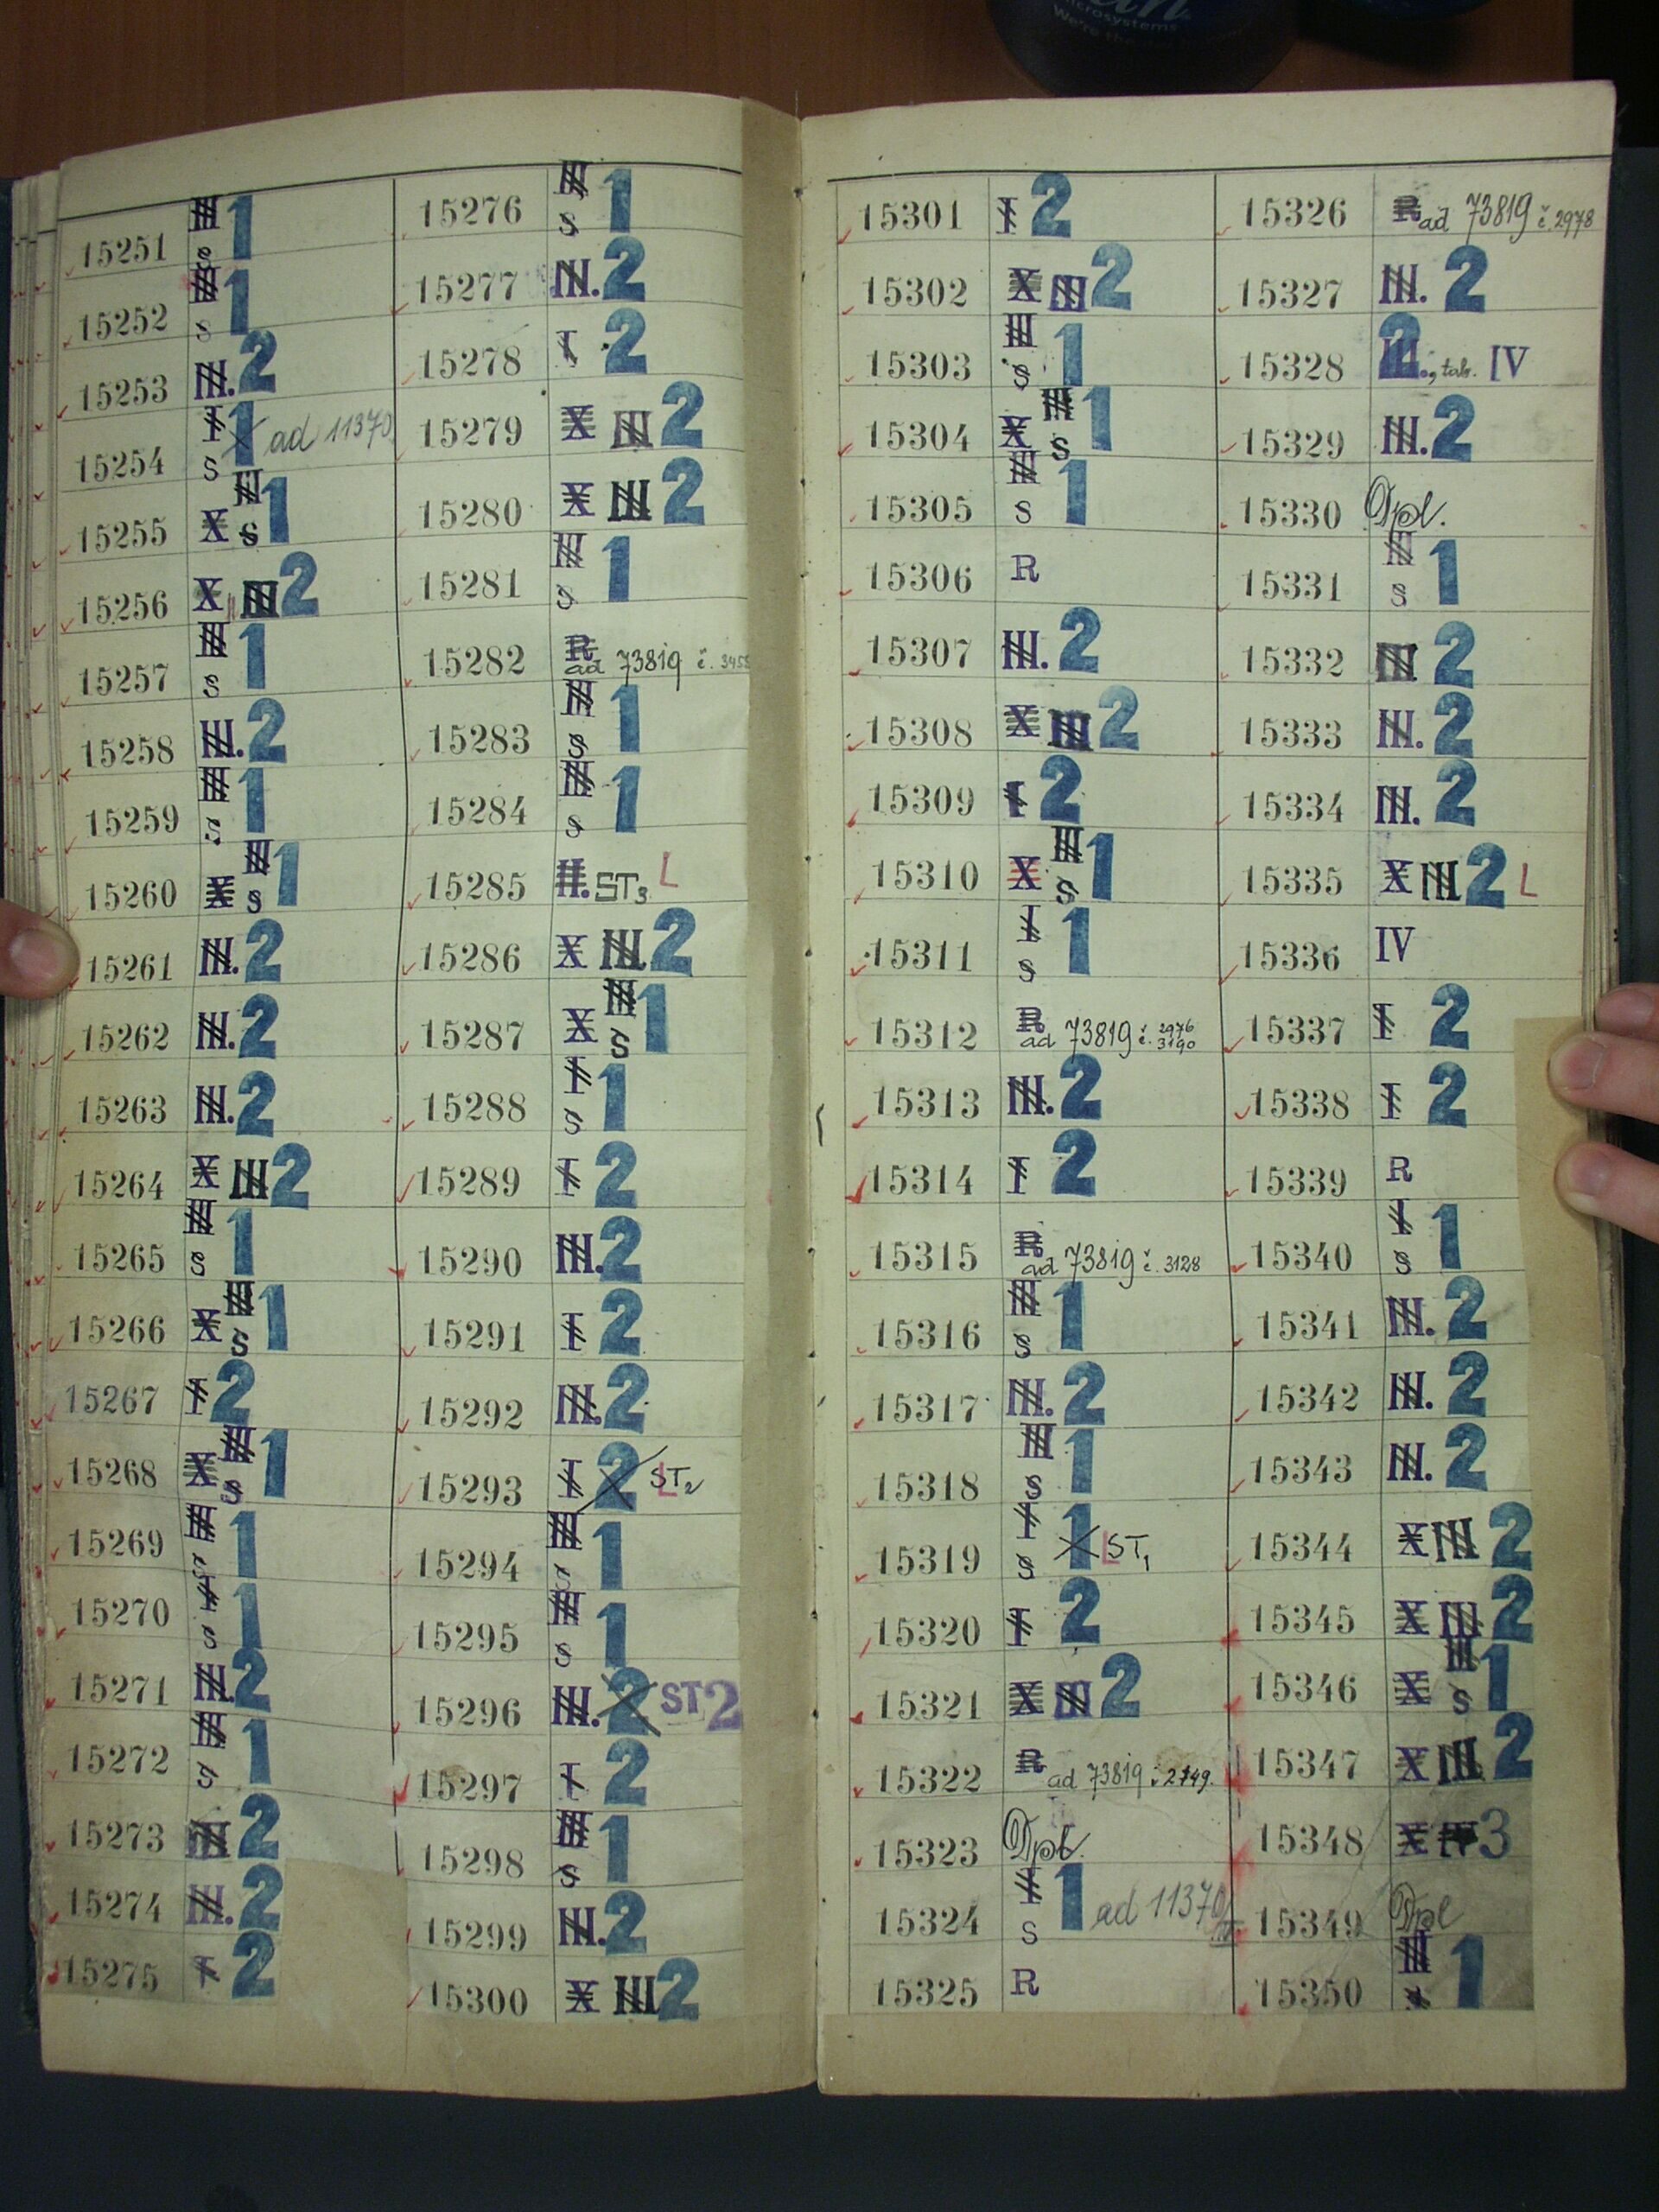 microsystems
15251 III S 1
15252 III S 1
15253 III. 2
15254 I S 1 ad 11370
15255 X III S 1
15256 X III 2
15257 III S 1
15258 III. 2
15259 III S 1
15260 X III S 1
15261 III. 2
15262 III. 2
15263 III. 2
15264 X III 2
15265 III S 1
15266 X III S 1
15267 I 2
15268 X III S 1
15269 III S 1
15270 I S 1
15271 III. 2
15272 III S 1
15273 III 2
15274 III. 2
15275 I 2
15276 III S 1
15277 III. 2
15278 I 2
15279 X III 2
15280 X III 2
15281 III S 1
15282 R ad 73819 č.
15283 III S 1
15284 III S 1
15285 II. ST3 L
15286 X III. 2
15287 X III S 1
15288 I S 1
15289 I 2
15290 III. 2
15291 I 2
15292 III. 2
15293 I 2 L ST2
15294 III S 1
15295 III S 1
15296 III. 2 ST2
15297 I 2
15298 III S 1
15299 III. 2
15300 X III 2
15301 I 2
15302 X III 2
15303 III S 1
15304 X III S 1
15305 III S 1
15306 R
15307 III. 2
15308 X III 2
15309 I 2
15310 X III S 1
15311 I S 1
15312 R ad 73819 č. 2976 3190
15313 III. 2
15314 I 2
15315 R ad 73819 č. 3128
15316 III S 1
15317 III. 2
15318 III S 1
15319 I S 1 L ST1
15320 I 2
15321 X III 2
15322 R ad 73819 č 2749.
15323 Dpl.
15324 I S 1 ad 11370
15325 R
15326 R ad 73819 č. 2978
15327 III. 2
15328 III. 2, tab. IV
15329 III. 2
15330 Dpl.
15331 III S 1
15332 III 2
15333 III. 2
15334 III. 2
15335 X III 2 L
15336 IV
15337 I 2
15338 I 2
15339 R
15340 I S 1
15341 III. 2
15342 III. 2
15343 III. 2
15344 X III 2
15345 X III 2
15346 X III S 1
15347 X III 2
15348 X IV 3
15349 Dpl
15350 III S 1